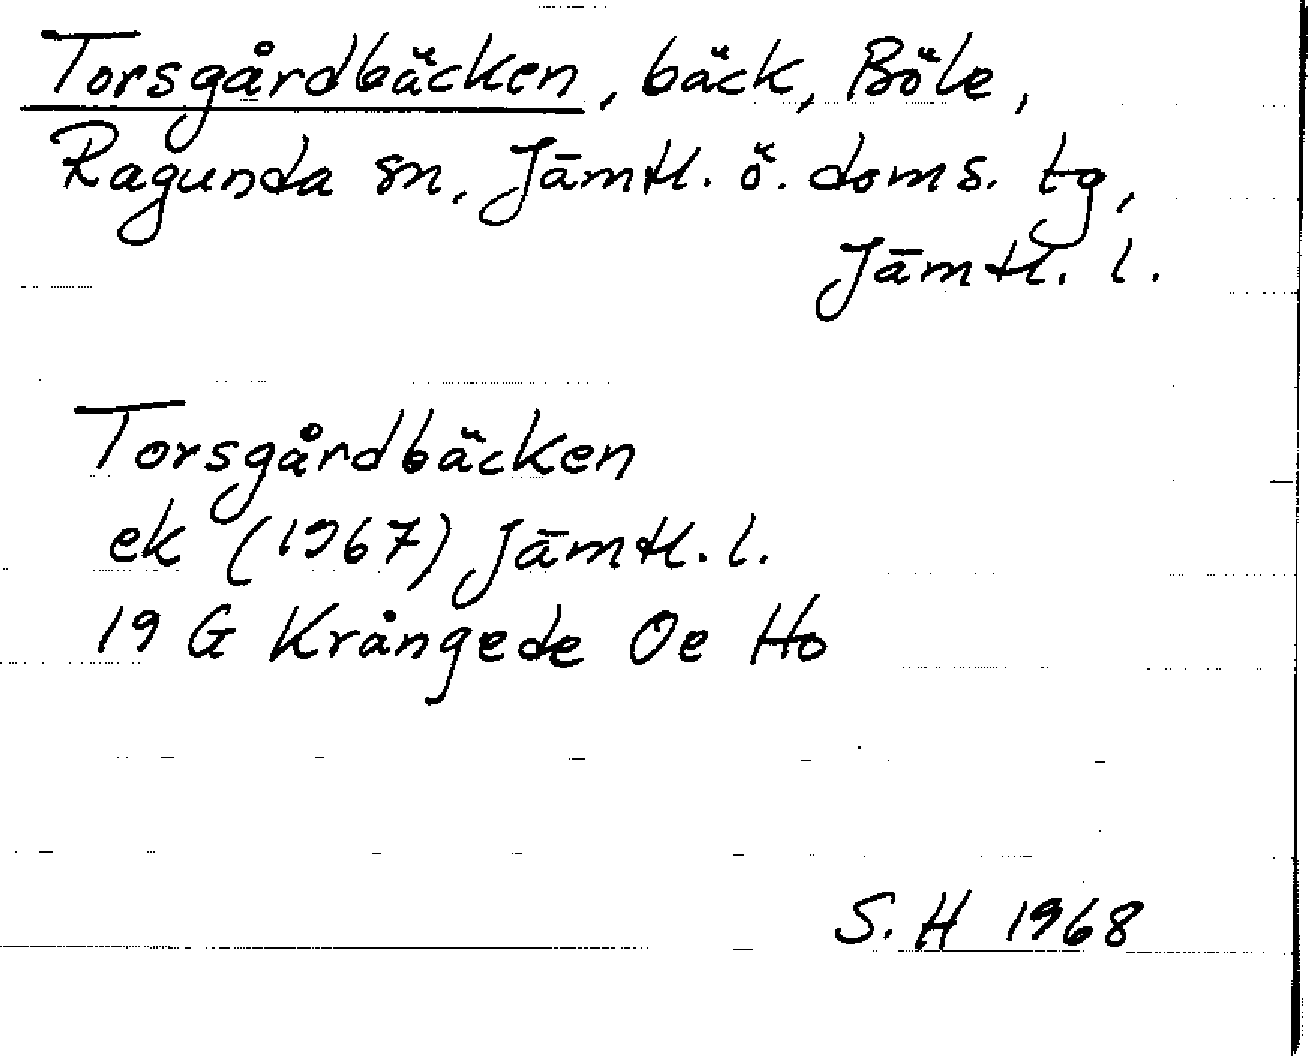 Torsgårdbäcken, bäck, Böle,
Ragunda sn, Jämtl. ö. doms. tg,
Jämtl. l.
Torsgårdbäcken
ek (1967) Jämtl. l.
19 G Krångede Oe Ho
S. H 1968